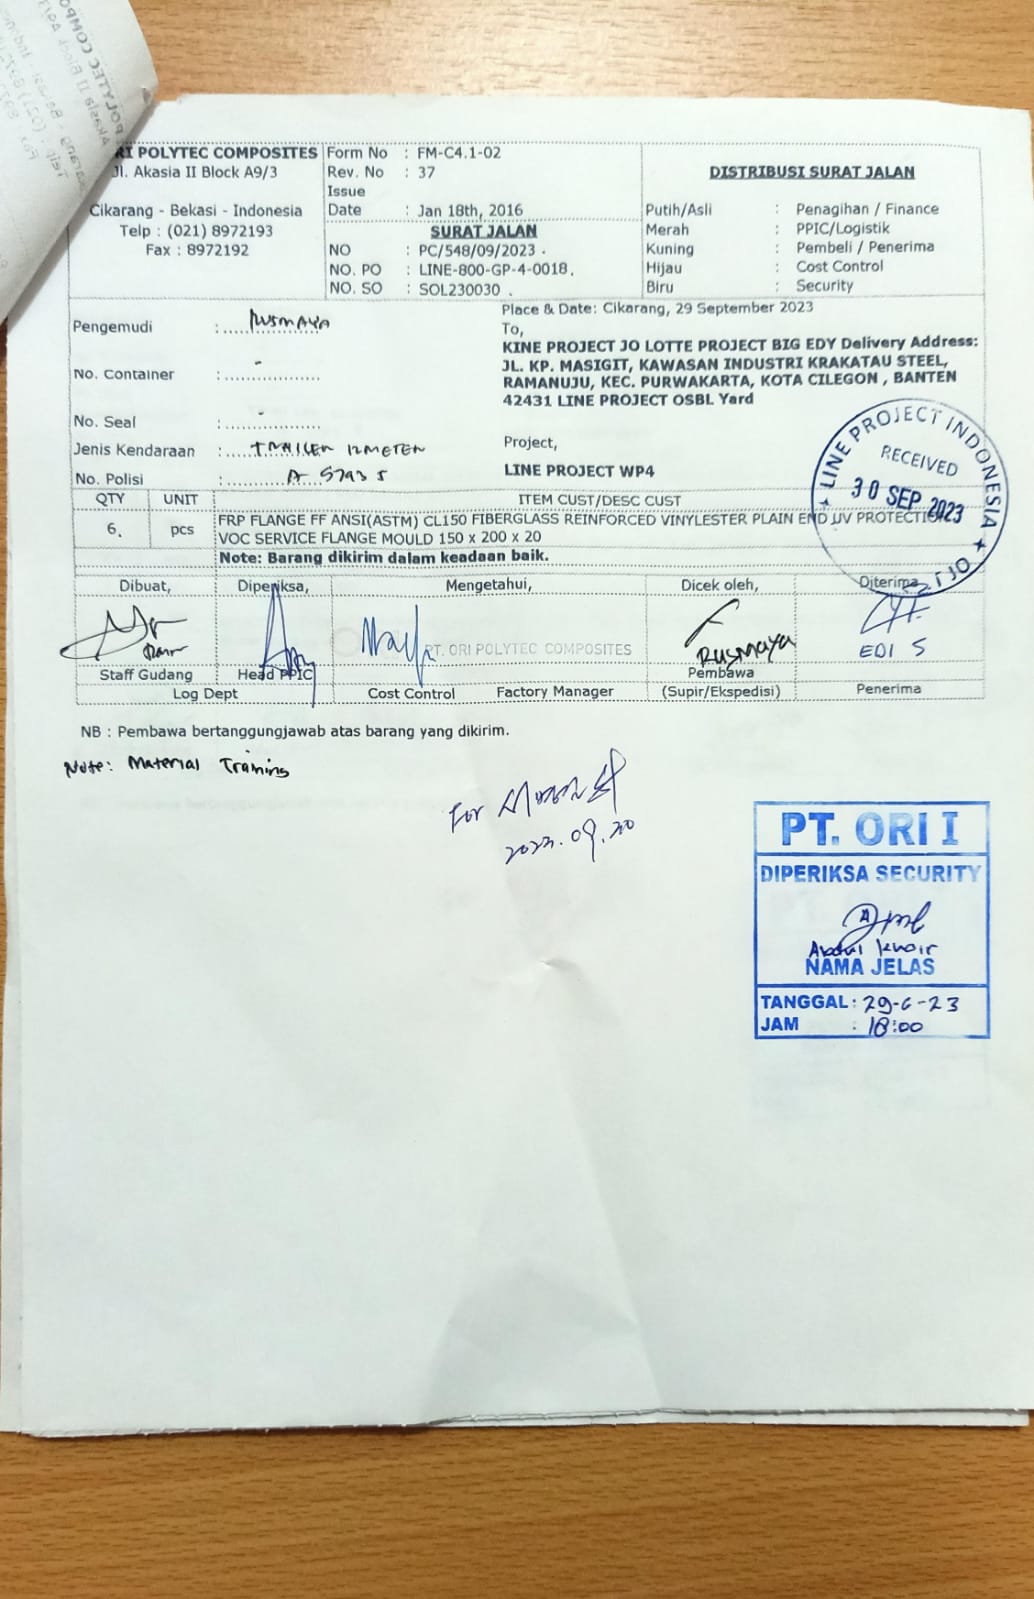 RI POLYTEC COMPOSITES
Jl. Akasia II Block A9/3
Cikarang - Bekasi - Indonesia
Telp : (021) 8972193
Fax : 8972192
Form No : FM-C4.1-02
Rev. No : 37
Issue
Date : Jan 18th, 2016
SURAT JALAN
NO : PC/548/09/2023 .
NO. PO : LINE-800-GP-4-0018.
NO. SO : SOL230030 .
DISTRIBUSI SURAT JALAN
Putih/Asli : Penagihan / Finance
Merah : PPIC/Logistik
Kuning : Pembeli / Penerima
Hijau : Cost Control
Biru : Security
Pengemudi : RUSMAYA
No. Container : -
No. Seal : -
Jenis Kendaraan : TRAILER 12 METER
No. Polisi : A 5793 S
Place & Date: Cikarang, 29 September 2023
To,
KINE PROJECT JO LOTTE PROJECT BIG EDY Delivery Address:
JL. KP. MASIGIT, KAWASAN INDUSTRI KRAKATAU STEEL,
RAMANUJU, KEC. PURWAKARTA, KOTA CILEGON , BANTEN
42431 LINE PROJECT OSBL Yard
Project,
LINE PROJECT WP4
LINE PROJECT INDONESIA
RECEIVED
30 SEP 2023
JO
QTY UNIT ITEM CUST/DESC CUST
6. pcs FRP FLANGE FF ANSI(ASTM) CL150 FIBERGLASS REINFORCED VINYLESTER PLAIN END UV PROTECTION
VOC SERVICE FLANGE MOULD 150 x 200 x 20
Note: Barang dikirim dalam keadaan baik.
Dibuat, Diperiksa, Mengetahui, Dicek oleh, Diterima
PT. ORI POLYTEC COMPOSITES
RUSMAYA
EDI S
Staff Gudang Head PPIC Pembawa
Log Dept Cost Control Factory Manager (Supir/Ekspedisi) Penerima
NB : Pembawa bertanggungjawab atas barang yang dikirim.
Note: Material Training
For
2023.09.30
PT. ORI I
DIPERIKSA SECURITY
Abdul Khoir
NAMA JELAS
TANGGAL : 29-6-23
JAM : 18:00